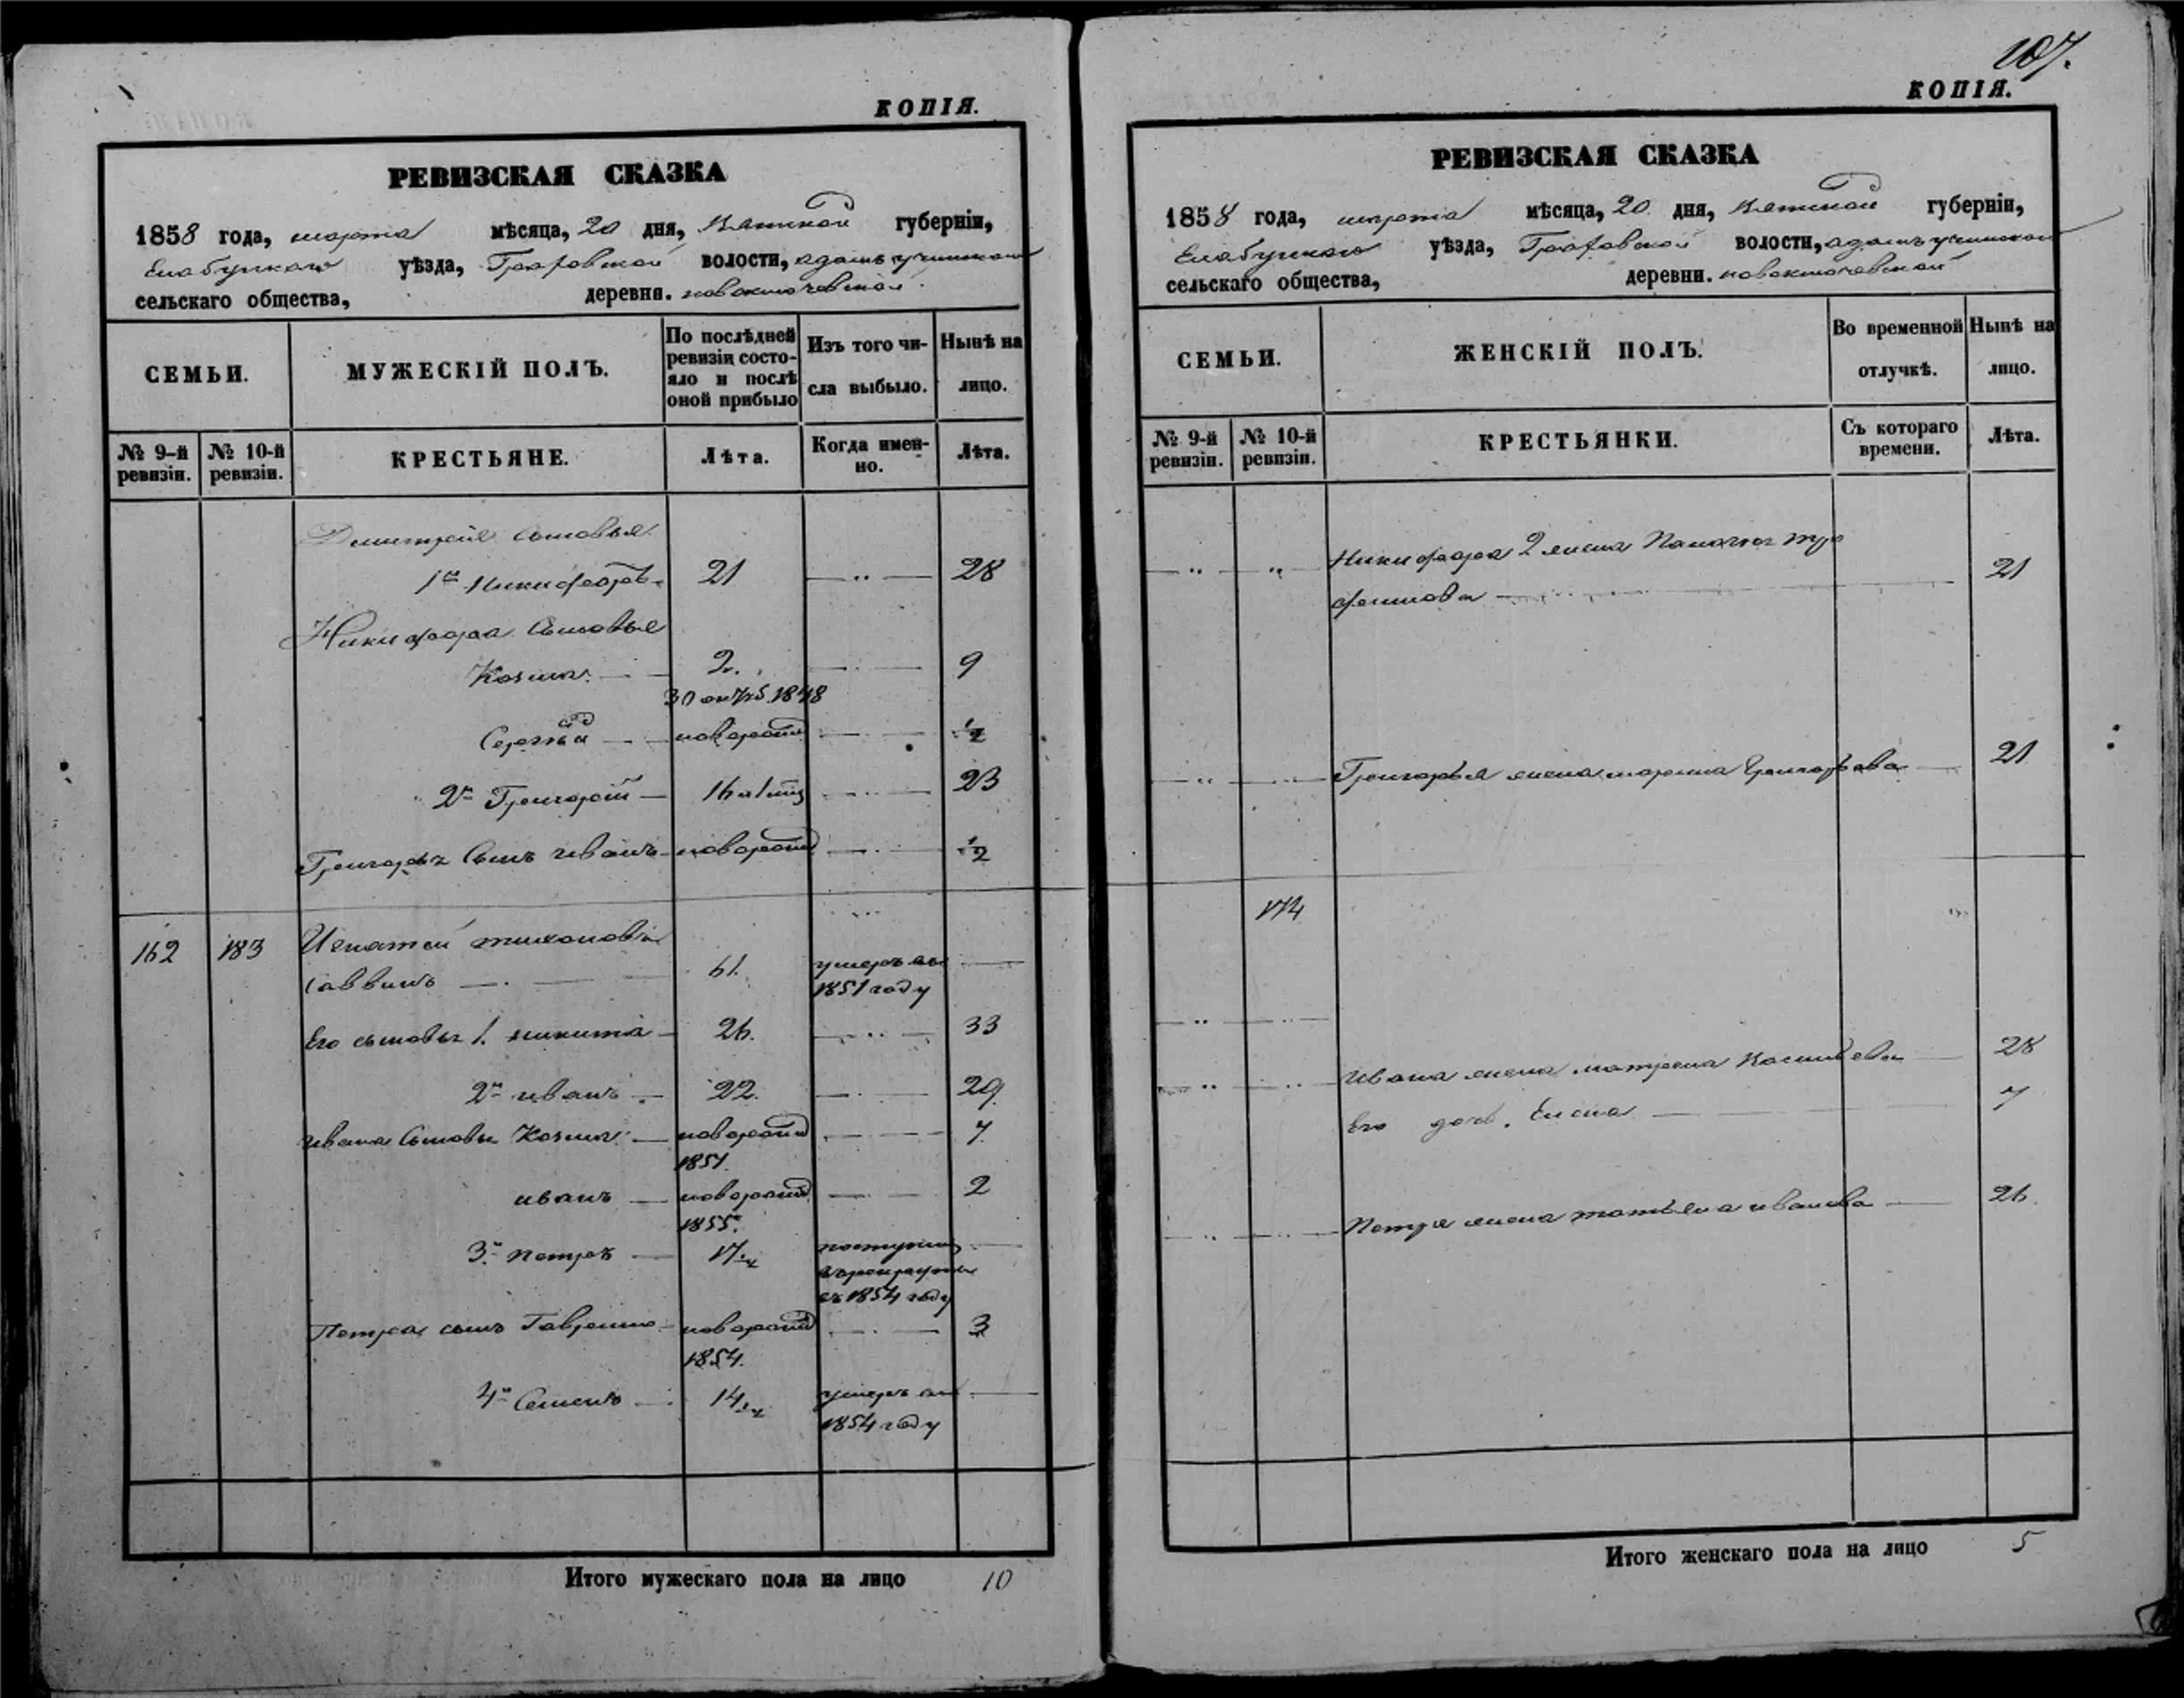 КОПІЯ.
РЕВИЗСКАЯ СКАЗКА
1858 года, марта мѣсяца, 20 дня, Вятской губерніи,
Елабужскаго уѣзда, Граховской волости,
сельскаго общества, деревни. новоключевской
СЕМЬИ.
МУЖЕСКІЙ ПОЛЪ.
По послѣдней
ревизіи состо-
яло и послѣ
оной прибыло
Изъ того чи-
сла выбыло.
Нынѣ на
лицо.
№ 9-й
ревизіи.
№ 10-й
ревизіи.
КРЕСТЬЯНЕ.
Лѣта.
Когда имен-
но.
Лѣта.
Дмитрія сыновья
1й Никифоръ 21 28
Никифора сыновья
Козма 2. 9
30 октяб. 1848
Сергѣй новорожд ½
2й Григорій 16 23
Григорья сынъ иванъ новорожд ½
162 183 Игнатей тихоновъ
Саввинъ 61. умеръ въ
1851 году
Его сыновья 1. никита 26. 33
2й иванъ 22. 29.
ивана сыновья Козма новорожд 7.
1851.
иванъ новорожд 2
1855.
3й петръ 17 поступилъ
въ рекруты
въ 1854 году
Петра сынъ Гаврило новорожд 3
1854.
4й Семенъ 14 умеръ въ
1854 году
Итого мужескаго пола на лицо 10
107.
КОПІЯ.
РЕВИЗСКАЯ СКАЗКА
1858 года, марта мѣсяца, 20 дня, Вятской губерніи,
Елабужскаго уѣзда, Граховской волости,
сельскаго общества, деревни. новоключевской
СЕМЬИ.
ЖЕНСКІЙ ПОЛЪ.
Во временной
отлучкѣ.
Нынѣ на
лицо.
№ 9-й
ревизіи.
№ 10-й
ревизіи.
КРЕСТЬЯНКИ.
Съ котораго
времени.
Лѣта.
Никифора 2 жена Палагея Тро
фимова 21
Григорья жена марина Григорьева 21
174
Ивана жена матрена Васильева 28
Его дочь Елена 7
Петра жена татьяна иванова 26.
Итого женскаго пола на лицо 5